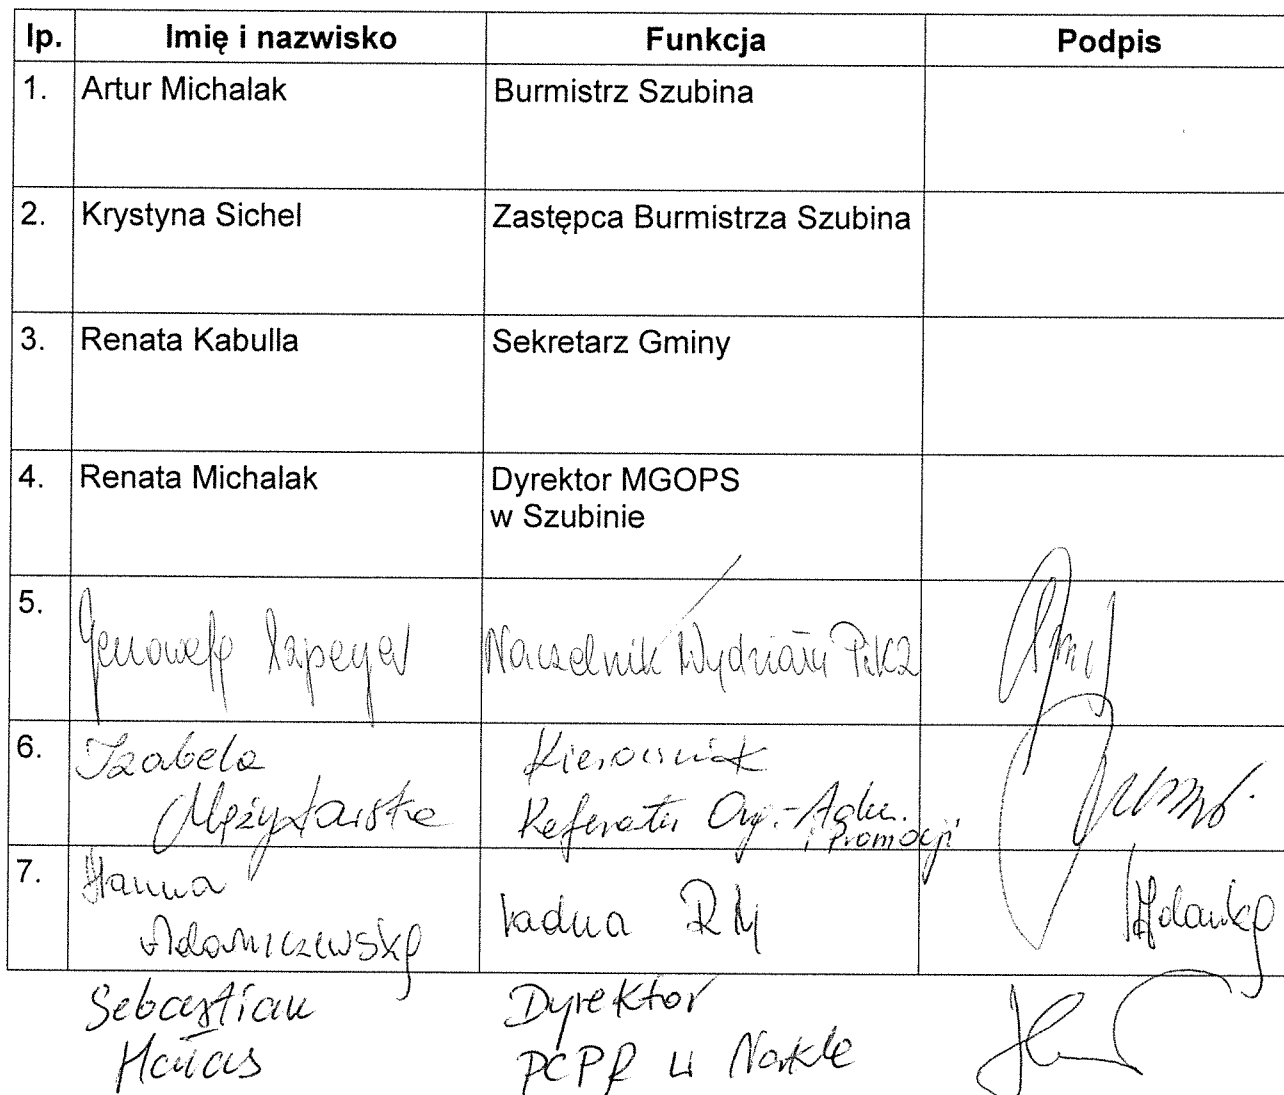 lp. Imię i nazwisko Funkcja Podpis
1. Artur Michalak Burmistrz Szubina
2. Krystyna Sichel Zastępca Burmistrza Szubina
3. Renata Kabulla Sekretarz Gminy
4. Renata Michalak Dyrektor MGOPS
w Szubinie
5. Genowefa Naczelnik Wydziału
6. Izabela Kierownik
Referatu Org.-Adm.
i Promocji
7. Hanna
Adamczewska radna RM
Sebastian Dyrektor
PCPR w Nakle